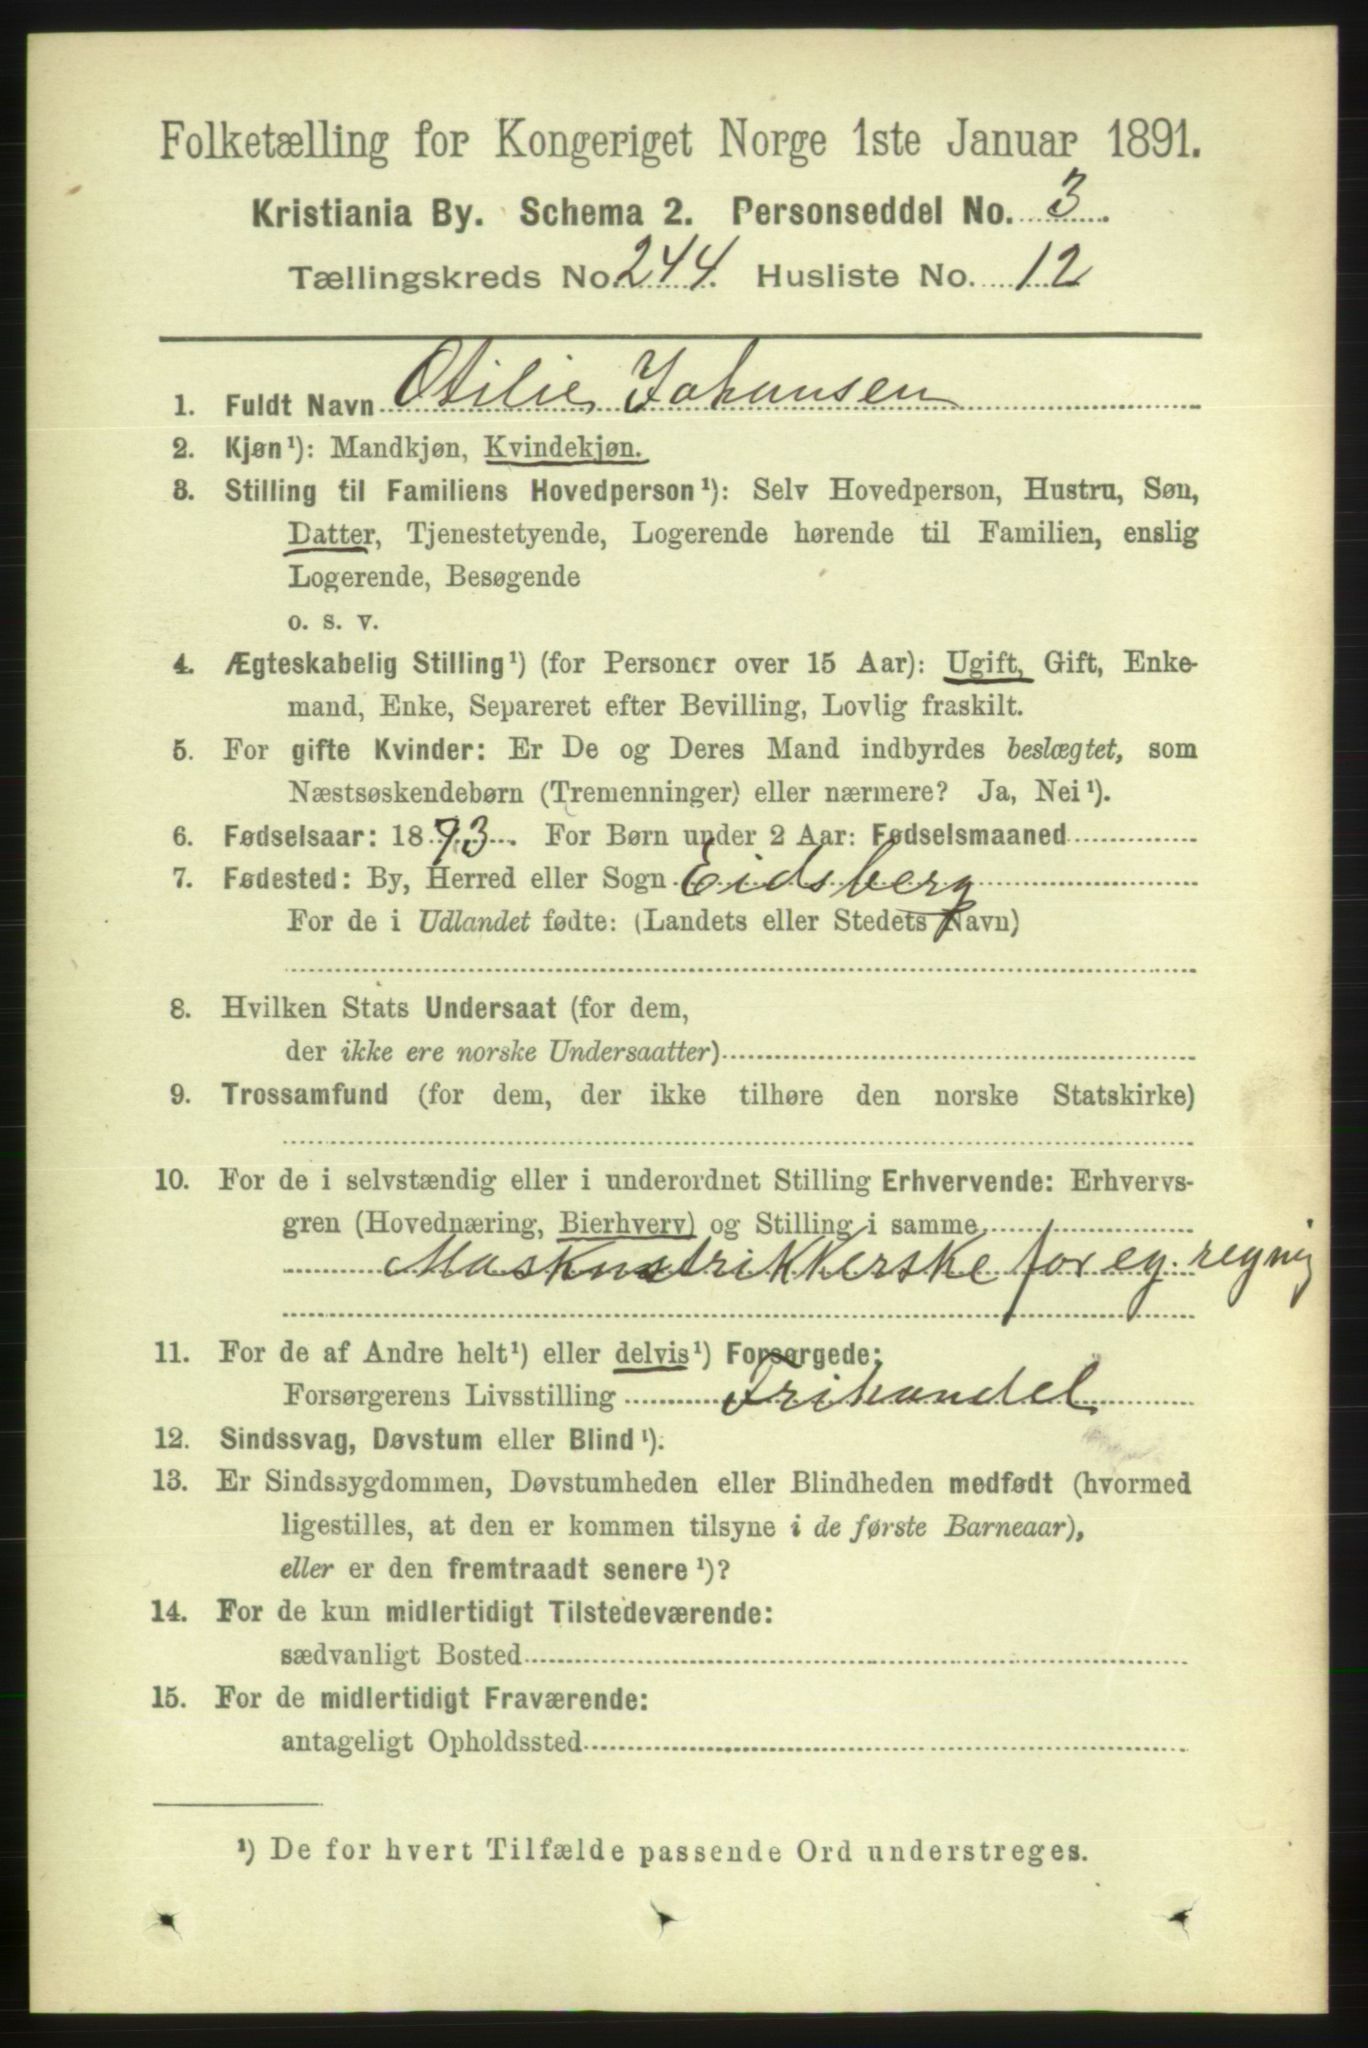 Folketælling for Kongeriget Norge 1ste Januar 1891.
Kristiania By. Schema 2. Personseddel No. 3.
Tællingskreds No. 244. Husliste No. 12
1. Fuldt Navn Otilie Johansen
2. Kjøn¹): Mandkjøn, Kvindekjøn.
3. Stilling til Familiens Hovedperson¹): Selv Hovedperson, Hustru, Søn,
Datter, Tjenestetyende, Logerende hørende til Familien, enslig
Logerende, Besøgende
o. s. v.
4. Ægteskabelig Stilling¹) (for Personer over 15 Aar): Ugift, Gift, Enke-
mand, Enke, Separeret efter Bevilling, Lovlig fraskilt.
5. For gifte Kvinder: Er De og Deres Mand indbyrdes beslægtet, som
Næstsøskendebørn (Tremenninger) eller nærmere? Ja, Nei¹).
6. Fødselsaar: 1873. For Børn under 2 Aar: Fødselsmaaned
7. Fødested: By, Herred eller Sogn Eidsberg
For de i Udlandet fødte: (Landets eller Stedets Navn)
8. Hvilken Stats Undersaat (for dem,
der ikke ere norske Undersaatter)
9. Trossamfund (for dem, der ikke tilhøre den norske Statskirke)
10. For de i selvstændig eller i underordnet Stilling Erhvervende: Erhvervs-
gren (Hovednæring, Bierhverv) og Stilling i samme
Maskinstrikkerske for eg. regnig
11. For de af Andre helt¹) eller delvis¹) Forsørgede:
Forsørgerens Livsstilling Frihandel
12. Sindssvag, Døvstum eller Blind¹).
13. Er Sindssygdommen, Døvstumheden eller Blindheden medfødt (hvormed
ligestilles, at den er kommen tilsyne i de første Barneaar),
eller er den fremtraadt senere¹)?
14. For de kun midlertidigt Tilstedeværende:
sædvanligt Bosted
15. For de midlertidigt Fraværende:
antageligt Opholdssted
¹) De for hvert Tilfælde passende Ord understreges.